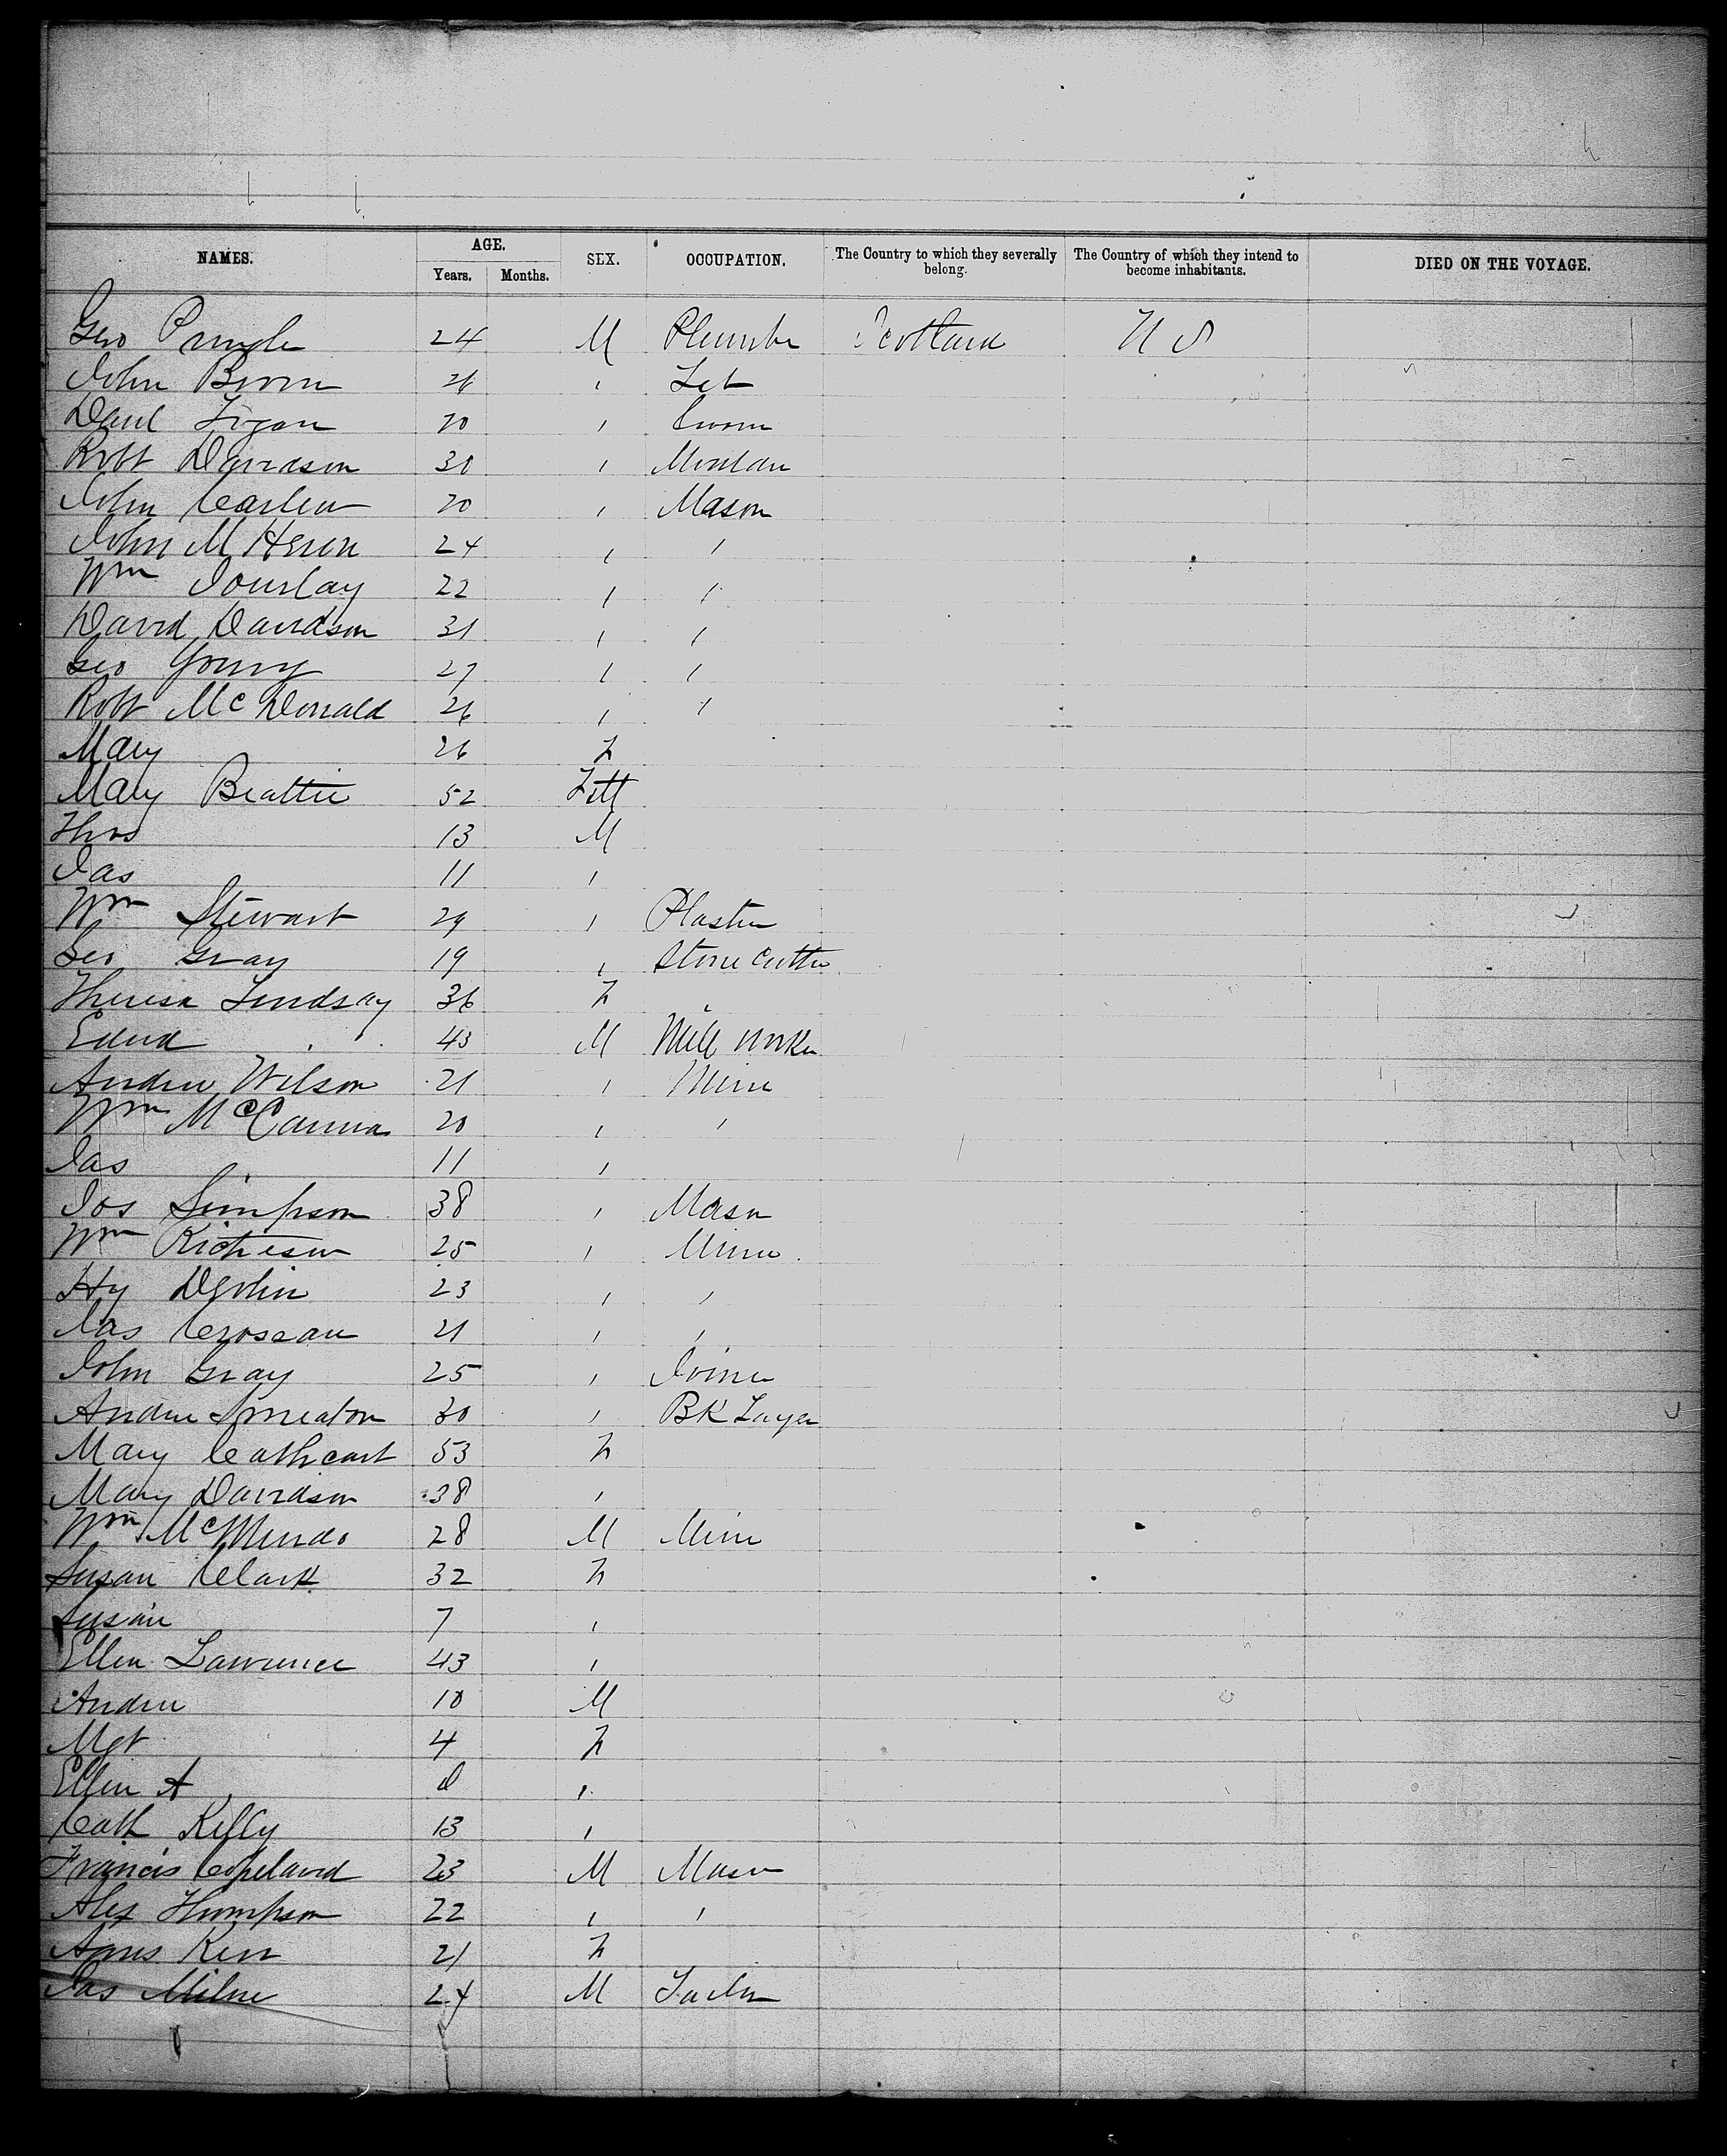 NAMES. AGE. SEX. OCCUPATION. The Country to which they severally belong. The Country of which they intend to become inhabitants. DIED ON THE VOYAGE.
Years. Months.
Geo Pringle 24 M Plumber Scotland U S
John Brown 26 ,
Danl 20 ,
Robt Davidson 30 , Moulder
John 20 , Mason
John M Heron 24 , ,
Wm Gourlay 22 , ,
David Davidson 31 , ,
Geo Young 27 , ,
Robt McDonald 26 , ,
Mary 26 F
Mary Beattie 52
Thos 13 M
Jas 11 ,
Wm Stewart 29 , Plaster
Geo Gray 19 , Stone Cutter
Theresa Lindsay 36 F
Edwd 43 M Mill worker
Andrew Wilson 21 , Miner
Wm McCanna 20 , ,
Jas 11 ,
Jos Simpson 38 , Mason
Wm Richeson 25 , Miner
Hy Devlin 23 , ,
Jas 21 , ,
John Gray 25 , Joiner
Andrew Smeaton 30 , BK Layer
Mary Cathcart 53 F
Mary Davidson 38 ,
Wm McMurdo 28 M Miner
Susan Clark 32 F
Susan 7 ,
Ellen Lawrence 43 ,
Andrew 10 M
Mgt 4 F
Ellen A ,
Cath Kelly 13 ,
Francis Copeland 23 M Mason
Alex Thompson 22 , ,
Agnes Kerr 21 F
Jas Milne 24 M Tailor